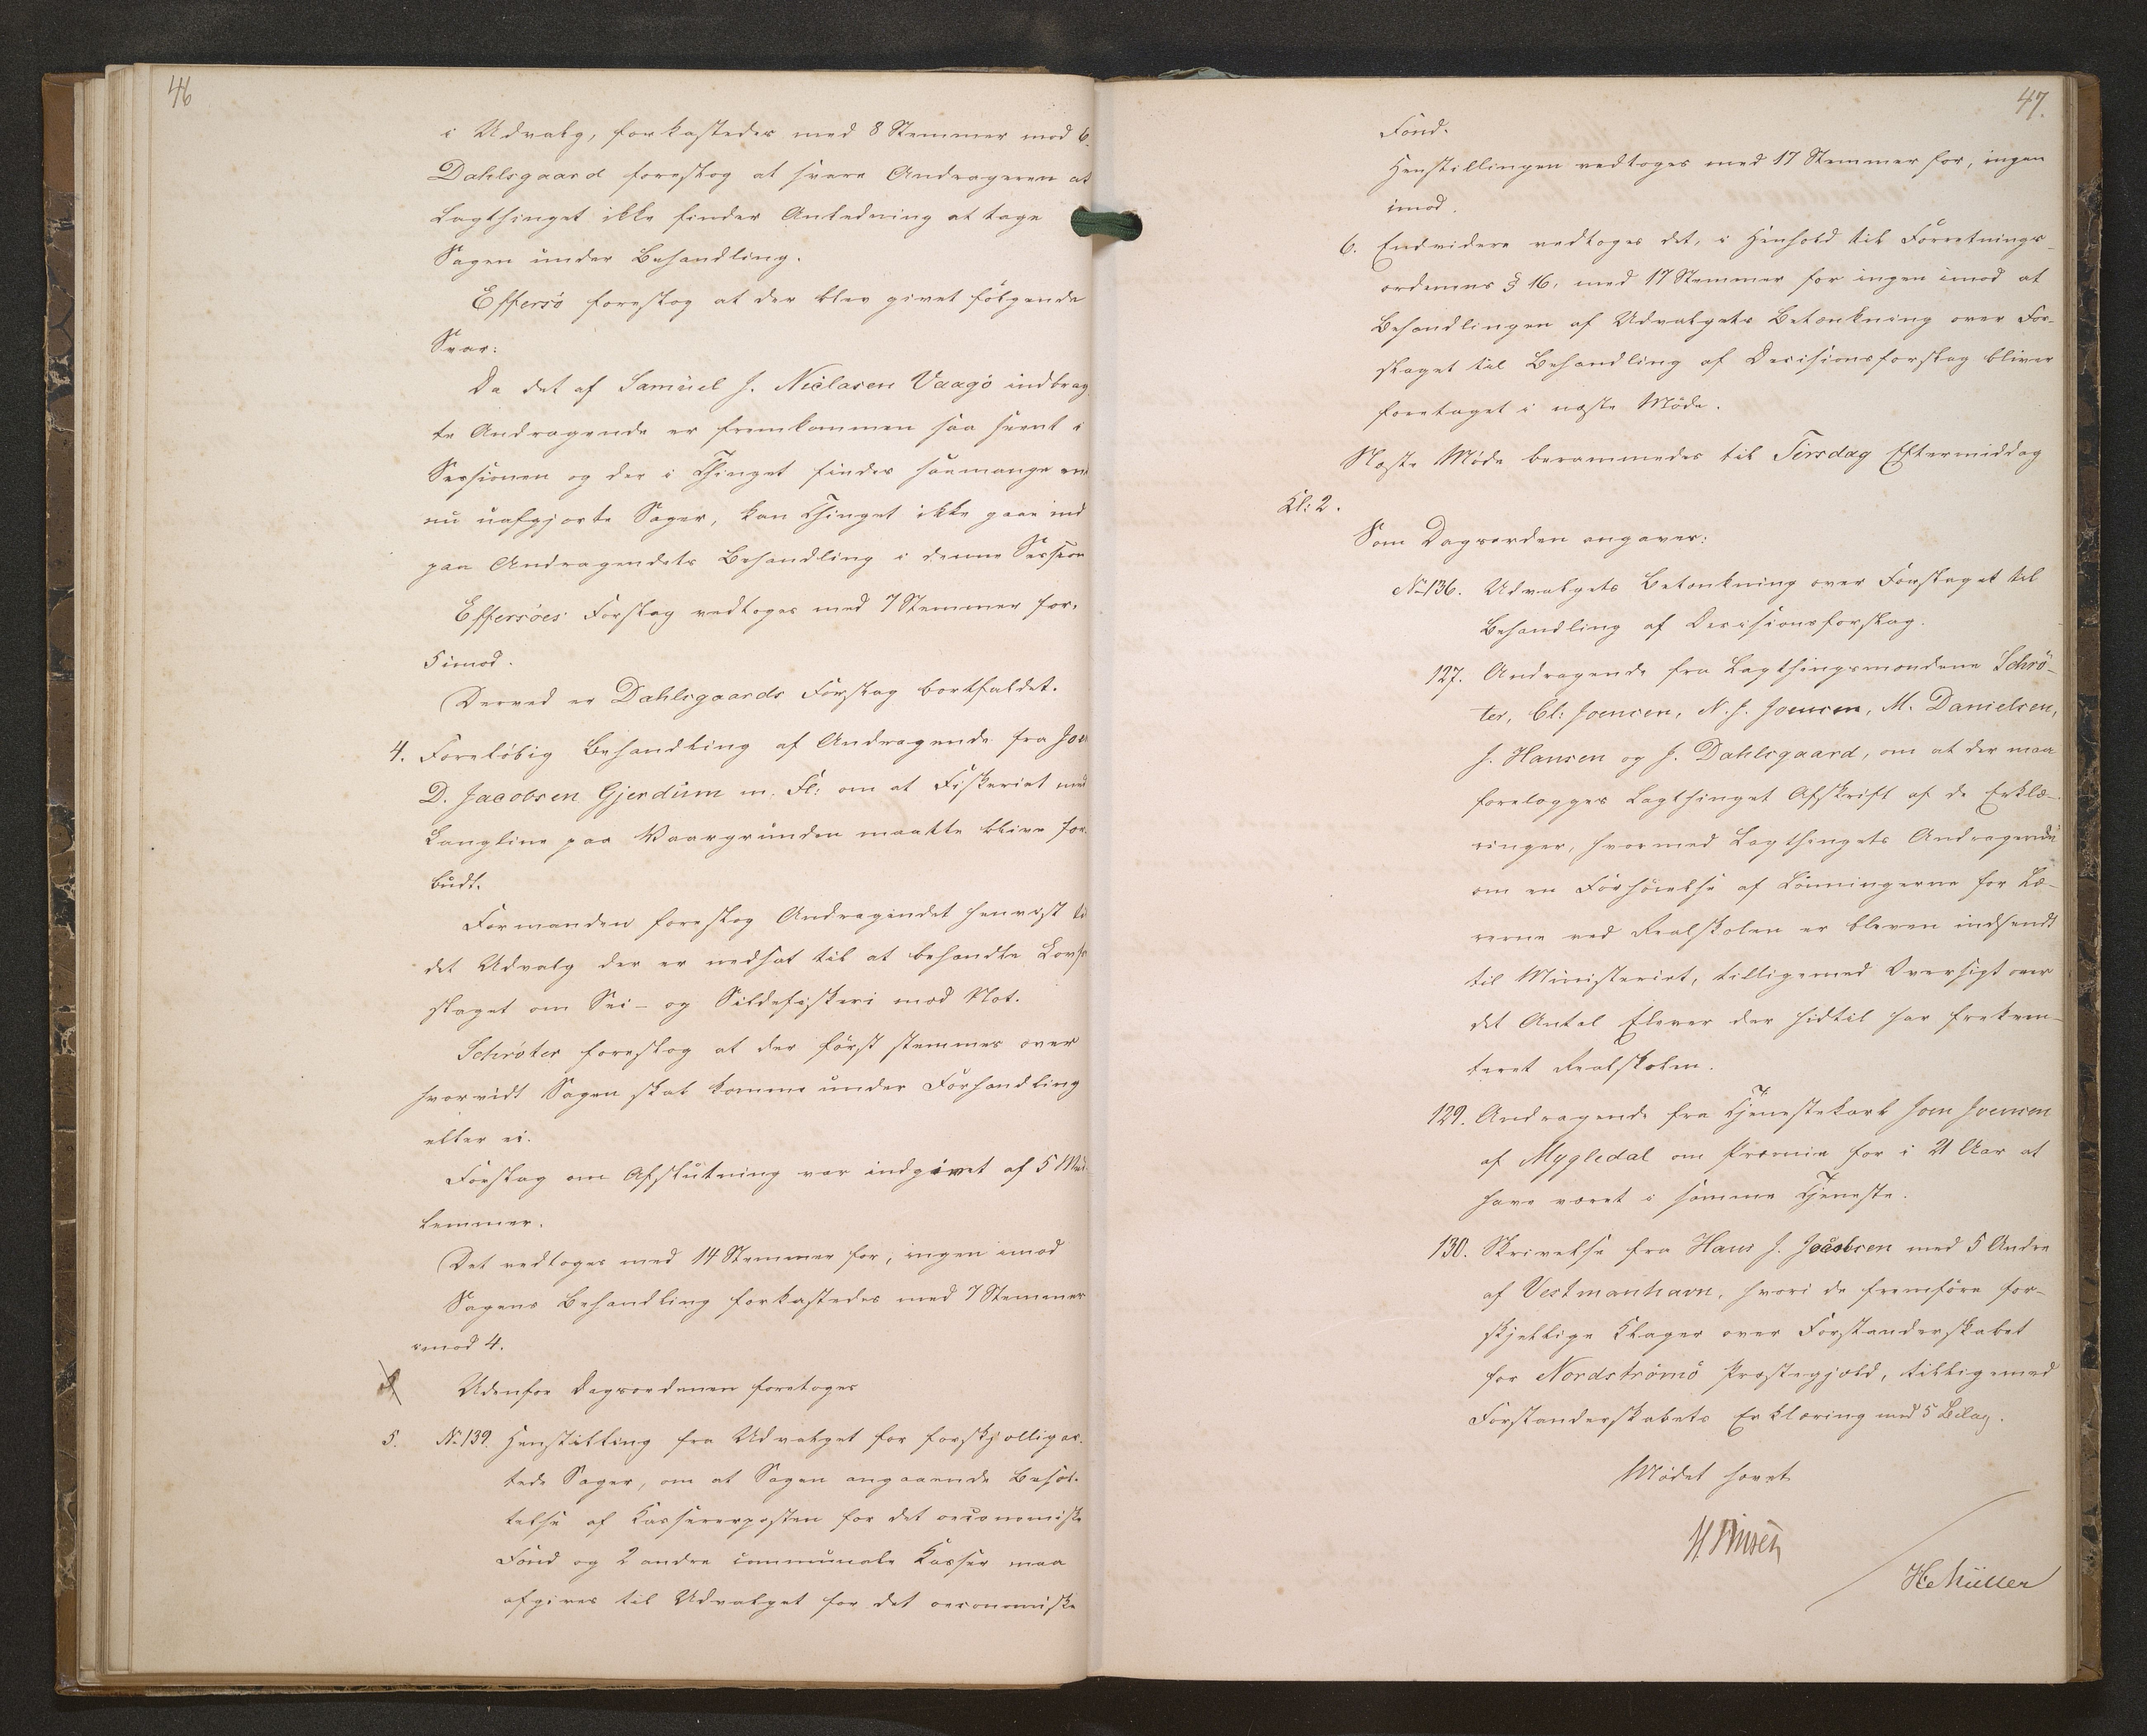 46
i Udvalg, forkastedes med 8 Stemmer mod 6.
Dahlsgaard foreslog at svare Andrageren at
Lagthinget ikke finder Anledning at tage
Sagen under Behandling.
Effersö foreslog at der blev givet følgende
Svar:
Da det af Samuel J. Niclasen Vaagö indbrag-
te Andragende er fremkommen saa seent i
Sessionen og der i Thinget findes saamange en
nu uafgjorte Sager, kan Thinget ikke gaae ind
paa Andragendets Behandling i denne Session
Effersöes Forslag vedtoges med 7 Stemmer for,
5 imod.
Derved er Dahlsgaards Forslag bortfaldet.
4. Foreløbig Behandling af Andragende fra Joe
D. Jacobsen Gjerdum m. Fl: om at Fiskeriet med
Langline paa Vaargrunden maatte blive for-
budt.
Formanden foreslog Andragendet henvist til
det Udvalg der er nedsat til at behandle Lovfor
slaget om Sei- og Sildefiskeri med Not.
Schröter foreslog at der først stemmes over
hvorvidt Sagen skal komme under Forhandling
eller ei.
Forslag om Afslutning var indgivet af 5 Med-
lemmer.
Det vedtoges med 14 Stemmer for, ingen imod
Sagens Behandling forkastedes med 7 Stemmer
imod 4.
Udenfor Dagsordenen foretoges
5. No 139. Henstilling fra Udvalget for forskjelligar-
tede Sager, om at Sagen angaaende Besæt-
telse af Kassererposten for det oeconomiske
Fond og 2 andre communale Kasser maa
afgives til Udvalget for det oeconomiske
47.
Fond.
Henstillingen vedtoges med 17 Stemmer for, ingen
imod.
6. Endvidere vedtoges det, i Henhold til Forretnings-
ordenens § 16, med 17 Stemmer for ingen imod at
Behandlingen af Udvalgets Betænkning over For-
slaget til Behandling af Decisionsforslag bliver
foretaget i næste Møde.
Næste Møde berammedes til Tirsdag Eftermiddag
Kl: 2.
Som Dagsorden angaves:
No 136. Udvalgets Betænkning over Forslaget til
Behandling af Decisionsforslag.
127. Andragende fra Lagthingsmændene Schrö-
ter, Cl: Joensen, N. J. Joensen, M. Danielsen,
J. Hansen og J. Dahlsgaard, om at der maa
forelægges Lagthinget Afskrift af de Erklæ-
ringer, hvormed Lagthingets Andragende
om en Forhøielse af Lønningerne for Læ-
rerne ved Realskolen er bleven indsendt
til Ministeriet, tilligemed Oversigt over
det Antal Elever der hidtil har frekven-
teret Realskolen.
129. Andragende fra Tjenestekarl Joen Joensen
af Mygledal om Præmie for i 21 Aar at
have været i samme Tjeneste.
130. Skrivelse fra Hans J. Jacobsen med 5 Andre
af Vestmanhavn, hvori de fremføre for-
skjellige Klager over Forstanderskabet
for Nordströmö Præstegjæld, tilligemed
Forstanderskabets Erklæring med 5 Bilag.
Mødet hævet
H C Müller